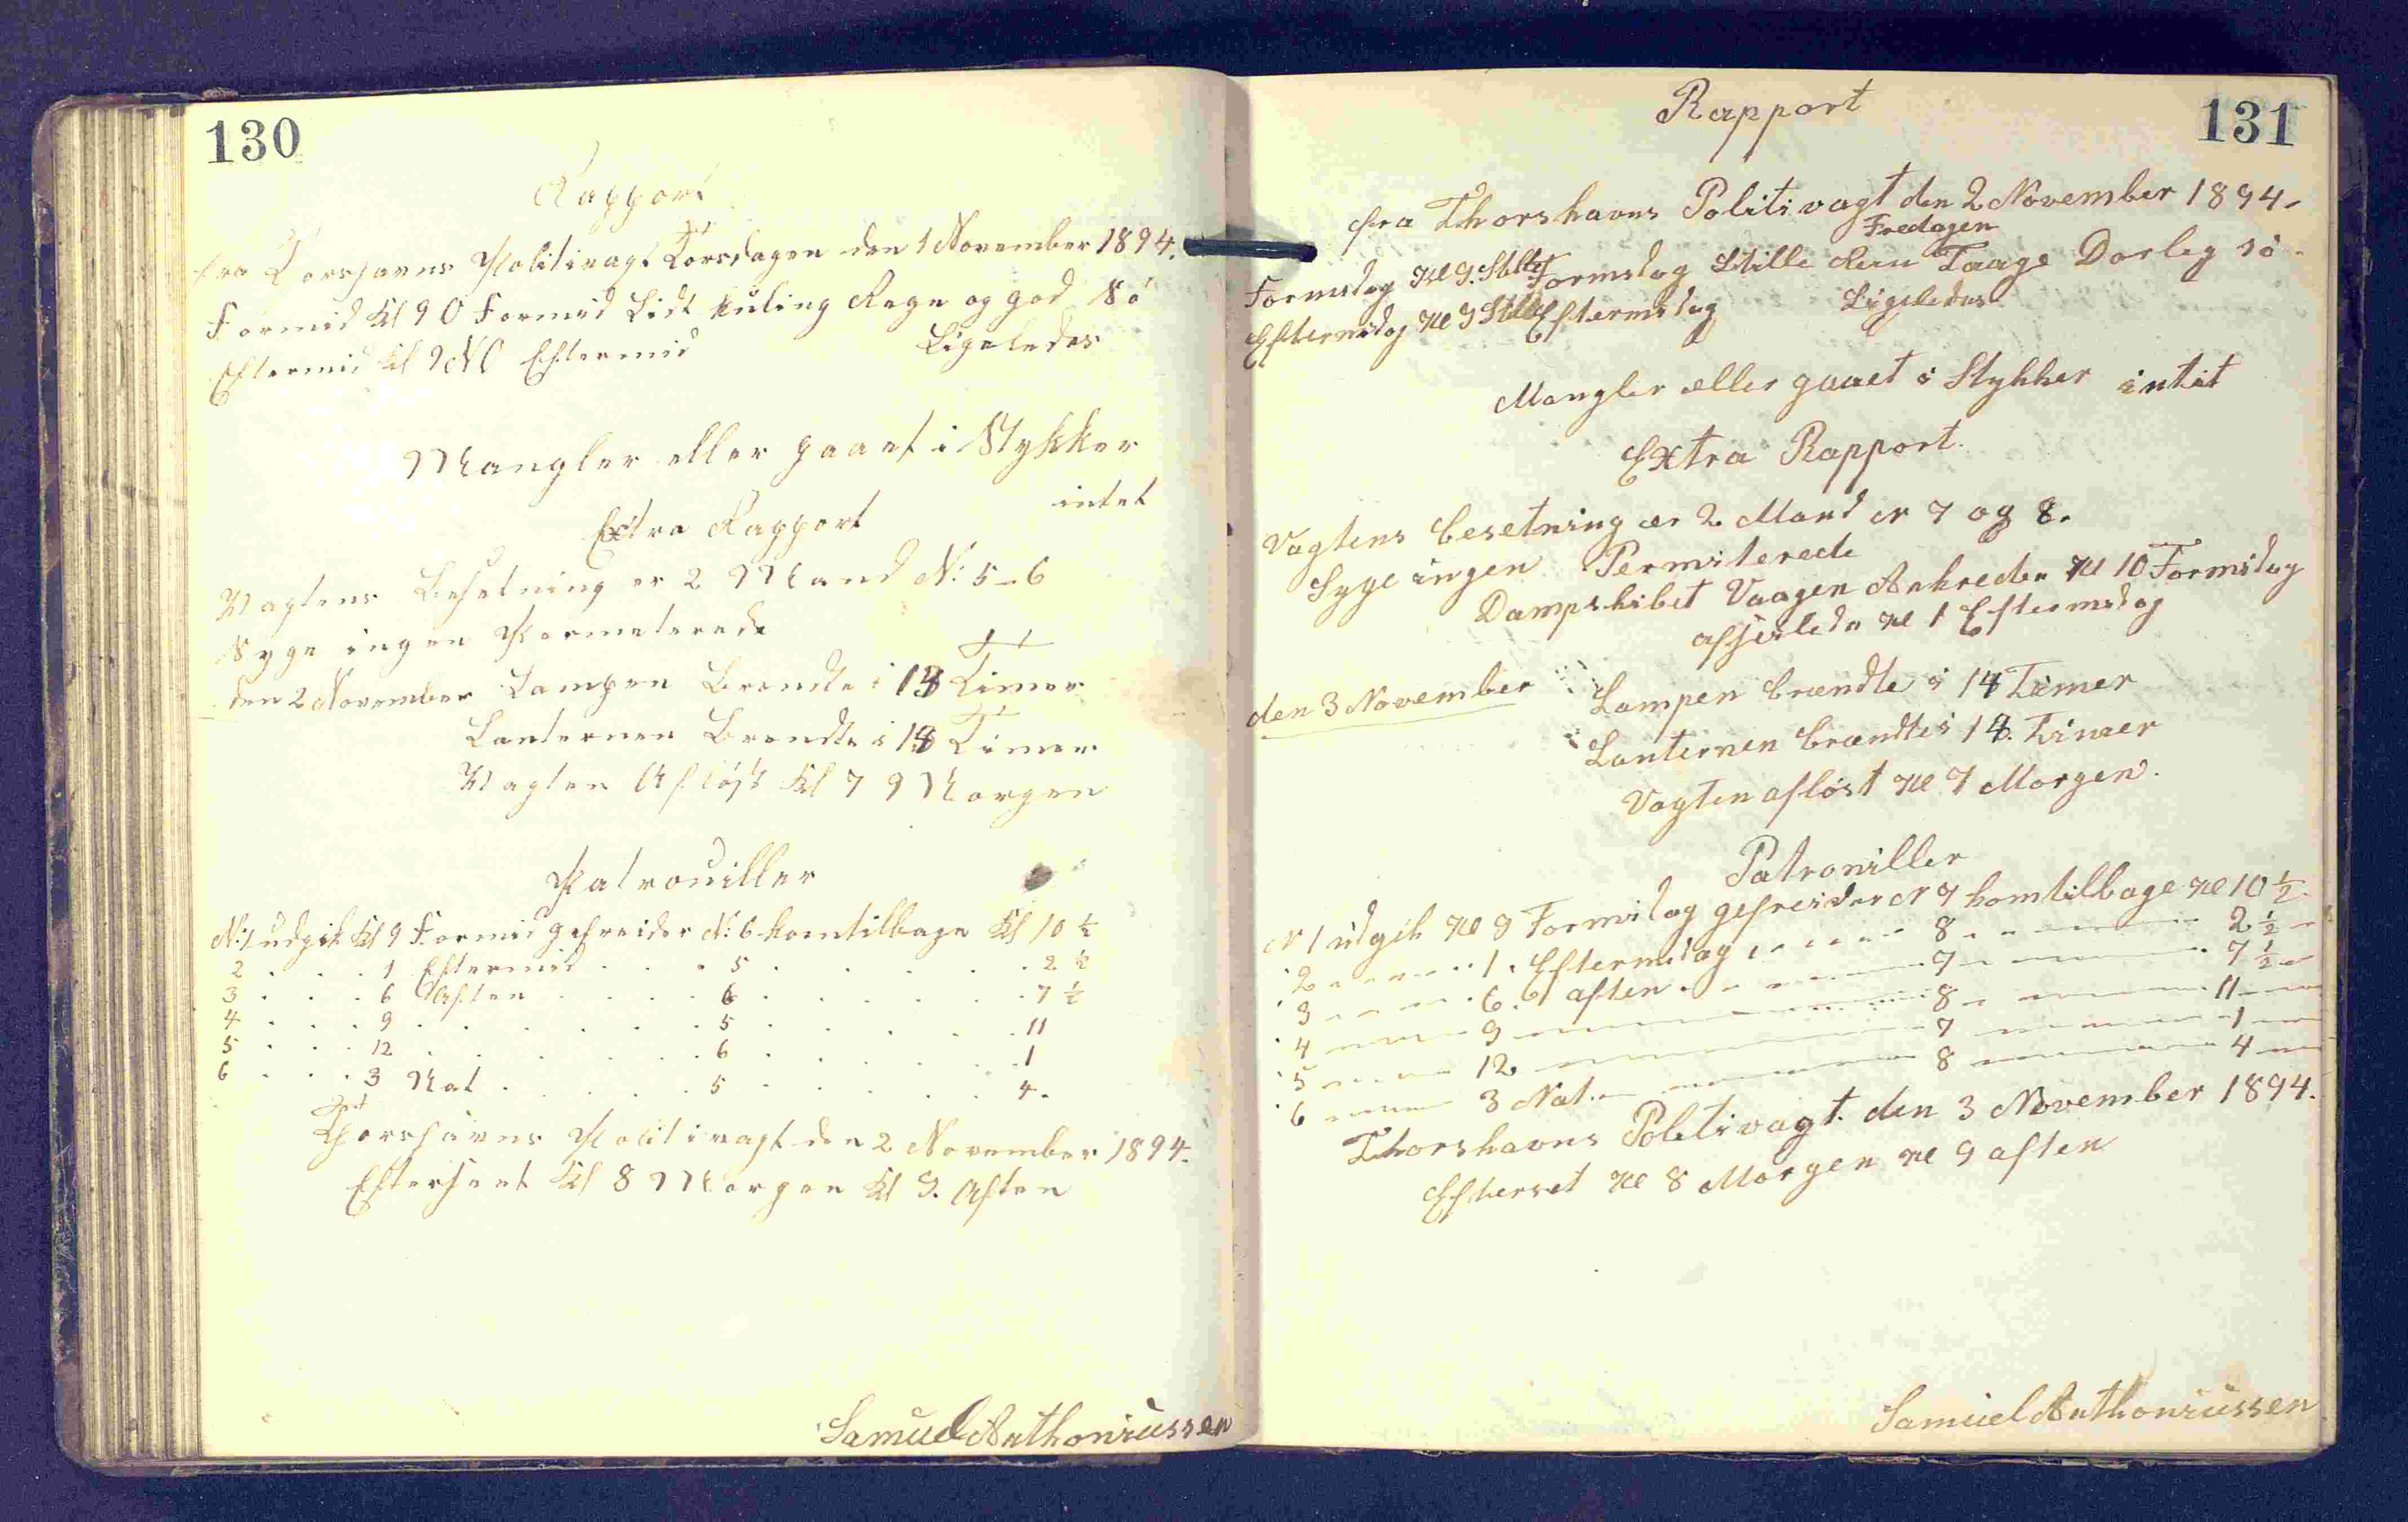 130
Rapport
fra Torshavns Politivagt Torsdagen den 1 November 1894.
Formid Kl 9 O Formid Lidt kuling Regn og god Sö
Eftermid Kl 9 NO Eftermid Ligeledes
Mangler eller gaaet i Stykker
intet
Extra Rapport
Vagtens Besetning er 2 Mand N: 5-6
Syge ingen Permeterede
den 2 November Lampen Brendte i 14 Timer
Lanternen Brendte i 14 Timer
Vagten Aflöst Kl 7 Morgen
Patrouiller
N: 1 udgik Kl 9 Formid gefreider N: 6 komtilbage Kl 10 ½
2 . . . 1 Eftermid . . . 5 . . . . . . 2 ½
3 . . . 6 Aften . . . . 6 . . . . . . 7 ½
4 . . . 9 . . . . . . . 5 . . . . . . 11
5 . . . 12 . . . . . . . 6 . . . . . . 1
6 . . . 3 Nat . . . . . 5 . . . . . . 4.
Thorshavns Politivagt den 2 November 1894.
Efterseet Kl 8 Morgen Kl 9. Aften
Samuel Anthoniussen
131
Rapport
fra Thorshavns Politivagt den 2 November 1894.
Fredagen
Formidag Kl 9. Stille Formidag Stille Taage Dorleg sö
Eftermidag Kl 9 Stille Eftermidag Ligeledes
Mangler eller gaaet i Stykker intet
Extra Rapport.
Vagtens besetning er 2 Mand N 7 og 8.
Syge ingen Permiterede
Dampskibet Vaagen Ankreder Kl 10 Formidag
afsejlede Kl 1 Eftermidag
den 3 November Lampen brændte i 14 Timer
Lanternen brændte i 14. Timer
Vagten aflöst Kl 7 Morgen.
Patrouiller
N 1 udgik Kl 9 Formidag gefreider N 7 komtilbage Kl 10 ½
2 - - - 1. Eftermidag - - - 8 - - - 2 ½
3 - - - 6. aften - - - 7 - - - 7 ½
4 - - - 9 - - - 8 - - - 11
5 - - - 12 - - - 7 - - - 1
6 - - - 3 Nat. - - - 8 - - - 4
Thorshavns Politivagt. den 3 November 1894.
Efterset Kl 8 Morgen Kl 9 aften
Samuel Anthoniussen